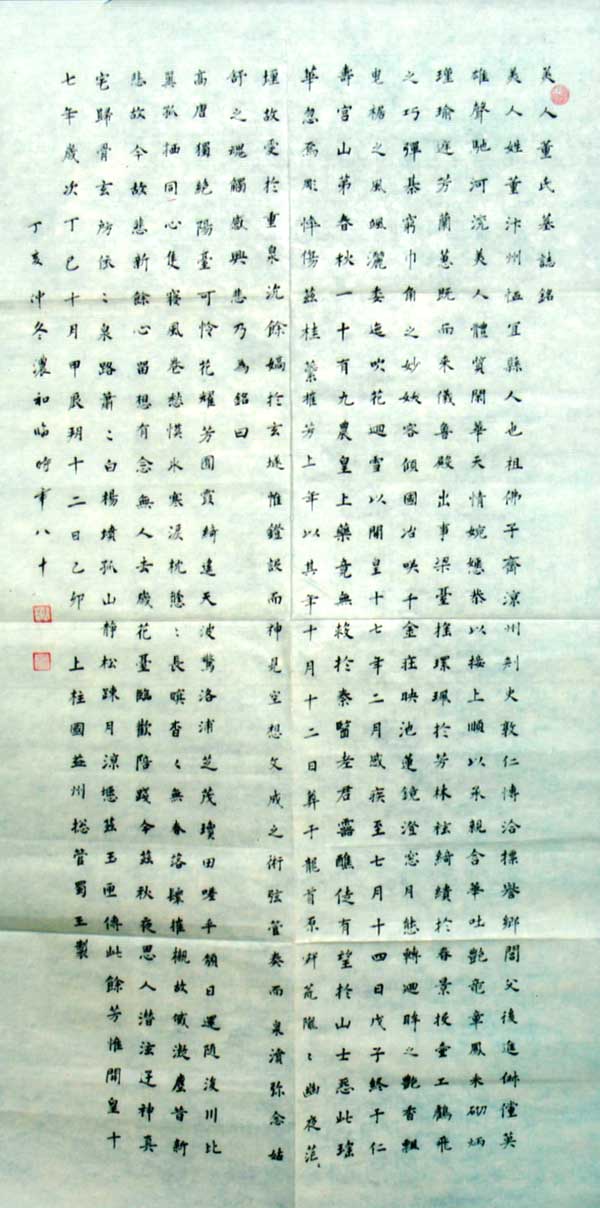 美人董氏墓誌銘
美人姓董汴州恤宜縣人也祖佛子齊涼州刺史敦仁博洽標譽鄉閭父後進俶儻英
雄聲馳河兗美人體質閑華天情婉嫕恭以接上順以承親含華吐艷竜章鳳采砌炳
瑾瑜庭芳蘭蕙既而來儀魯殿出事梁臺搖環珮於芳林袨綺繢於春景投壺工鶴飛
之巧彈棊窮巾角之妙妖容傾國冶咲千金莊映池蓮鏡澄窗月態轉迴眸之艷香飄
曳裾之風颯灑委迤吹花迴雪以開皇十七年二月感疾至七月十四日戊子終于仁
壽宮山第春秋一十有九農皇上藥竟無救於秦醫老君靈醮徒有望於山士怨此瑤
華忽焉彫悴傷茲桂蘂摧芳上年以其年十月十二日葬于龍首原荒隴幽夜茫
埋故愛於重泉沉餘嬌於玄隧惟鐙設而神見空想文成之術弦管奏而泉濆彌念姑
舒之魂觸感興悲乃為銘曰
高唐獨絕陽臺可憐花耀芳囿霞綺遙天波驚洛浦芝茂瓊田嗟乎頹日還隨浚川比
翼孤栖同心隻寢風卷愁慔冰寒淚枕悠〻長暝杳〻無春落鬟摧櫬故黛凝塵昔新
悲故今故悲新餘心留想有念無人去歲花臺臨歡陪踐今茲秋夜思人潛泫迍神真
宅歸骨玄房依〻泉路蕭〻白楊墳孤山靜松疎月涼瘞茲玉匣傳此餘芳惟開皇十
七年歲次丁巳十月甲辰朔十二日乙卯 上柱國益州總管蜀王製
丁亥仲冬濃和臨時年八十